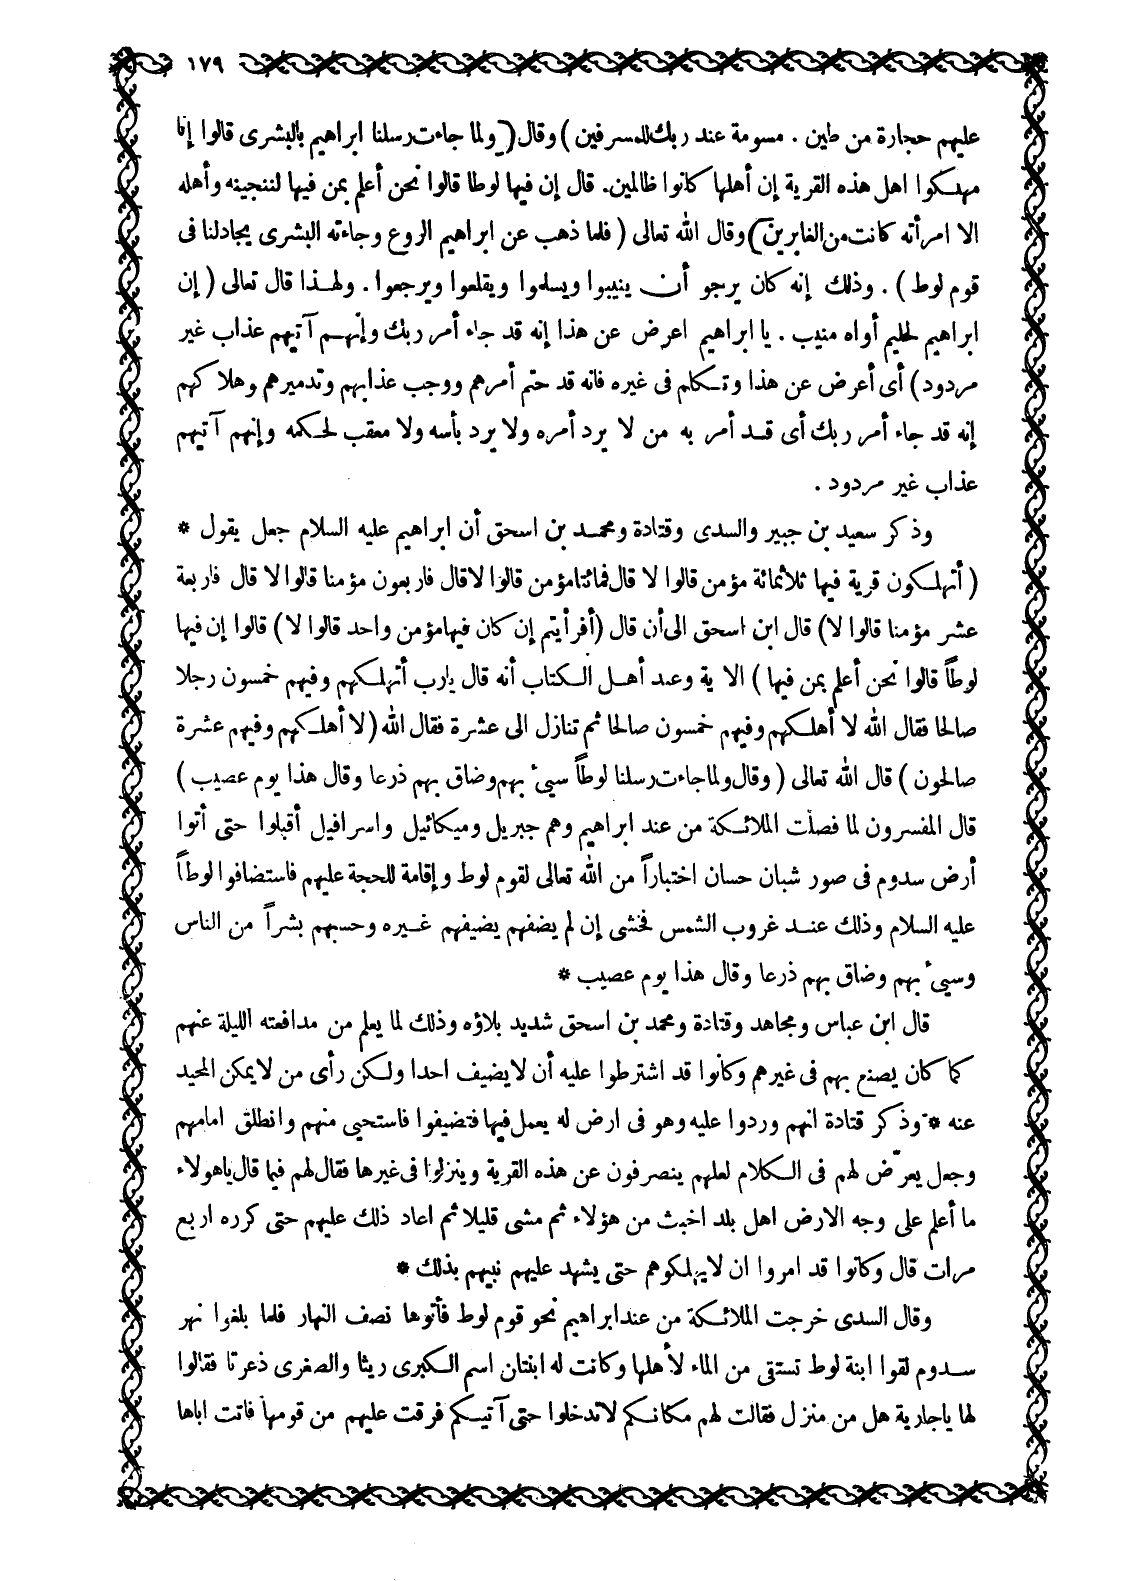 ١٧٩
عليهم حجارة من طين . مسومة عند ربك للمسرفين ) وقال ( ولما جاءت رسلنا ابراهيم بالبشرى قالوا إنا
مهلكوا اهل هذه القرية إن أهلها كانوا ظالمين. قال إن فيها لوطا قالوا نحن أعلم بمن فيها لننجينه وأهله
الا امرأته كانت من الغابرين ) وقال الله تعالى ( فلما ذهب عن ابراهيم الروع وجاءته البشرى يجادلنا فى
قوم لوط ) . وذلك إنه كان يرجو أن ينيبوا ويسلموا ويقلعوا ويرجعوا . ولهذا قال تعالى ( إن
ابراهيم لحليم أواه منيب . يا ابراهيم اعرض عن هذا إنه قد جاء أمر ربك وإنهم آتيهم عذاب غير
مردود ) أى أعرض عن هذا وتكلم فى غيره فانه قد حتم أمرهم ووجب عذابهم وتدميرهم وهلاكهم
إنه قد جاء أمر ربك أى قد أمر به من لا يرد أمره ولا يرد بأسه ولا معقب لحكمه وإنهم آتيهم
عذاب غير مردود .
وذكر سعيد بن جبير والسدى وقتادة ومحمد بن اسحق أن ابراهيم عليه السلام جعل يقول *
( أتهلكون قرية فيها ثلاثمائة مؤمن قالوا لا قال فمائتا مؤمن قالوا لا قال فاربعون مؤمنا قالوا لا قال فاربعة
عشر مؤمنا قالوا لا) قال ابن اسحق الى أن قال (أفرأيتم إن كان فيها مؤمن واحد قالوا لا ) قالوا إن فيها
لوطاً قالوا نحن أعلم بمن فيها ) الاية وعند أهل الكتاب أنه قال يارب أتهلكهم وفيهم خمسون رجلا
صالحا فقال الله لا أهلكهم وفيهم خمسون صالحا ثم تنازل الى عشرة فقال الله (لا أهلكهم وفيهم عشرة
صالحون ) قال الله تعالى ( وقال ولما جاءت رسلنا لوطاً سيئ بهم وضاق بهم ذرعا وقال هذا يوم عصيب )
قال المفسرون لما فصلت الملائكة من عند ابراهيم وهم جبريل وميكائيل واسرافيل أقبلوا حتى أتوا
أرض سدوم فى صور شبان حسان اختباراً من الله تعالى لقوم لوط وإقامة للحجة عليهم فاستضافوا لوطاً
عليه السلام وذلك عند غروب الشمس فخشى إن لم يضفهم يضيفهم غيره وحسبهم بشراً من الناس
وسيئ بهم وضاق بهم ذرعا وقال هذا يوم عصيب *
قال ابن عباس ومجاهد وقتادة ومحمد بن اسحق شديد بلاؤه وذلك لما يعلم من مدافعته الليلة عنهم
كما كان يصنع بهم فى غيرهم وكانوا قد اشترطوا عليه أن لا يضيف احدا ولكن رأى من لا يمكن المحيد
عنه * وذكر قتادة انهم وردوا عليه وهو فى ارض له يعمل فيها فتضيفوا فاستحيى منهم وانطلق امامهم
وجعل يعرّض لهم فى الكلام لعلهم ينصرفون عن هذه القرية وينزلوا فى غيرها فقال لهم فيما قال ياهولاء
ما أعلم على وجه الارض اهل بلد اخبث من هؤلاء ثم مشى قليلا ثم اعاد ذلك عليهم حتى كرره اربع
مرات قال وكانوا قد امروا ان لا يهلكوهم حتى يشهد عليهم نبيهم بذلك *
وقال السدى خرجت الملائكة من عند ابراهيم نحو قوم لوط فأتوها نصف النهار فلما بلغوا نهر
سدوم لقوا ابنة لوط تستقى من الماء لأهلها وكانت له ابنتان اسم الكبرى ريثا والصغرى ذعرتا فقالوا
لها ياجارية هل من منزل فقالت لهم مكانكم لا تدخلوا حتى آتيكم فرقت عليهم من قومها فاتت اباها